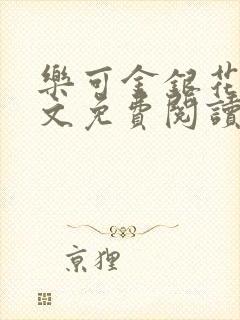 樂可金銀花
文免費閱讀
京狸